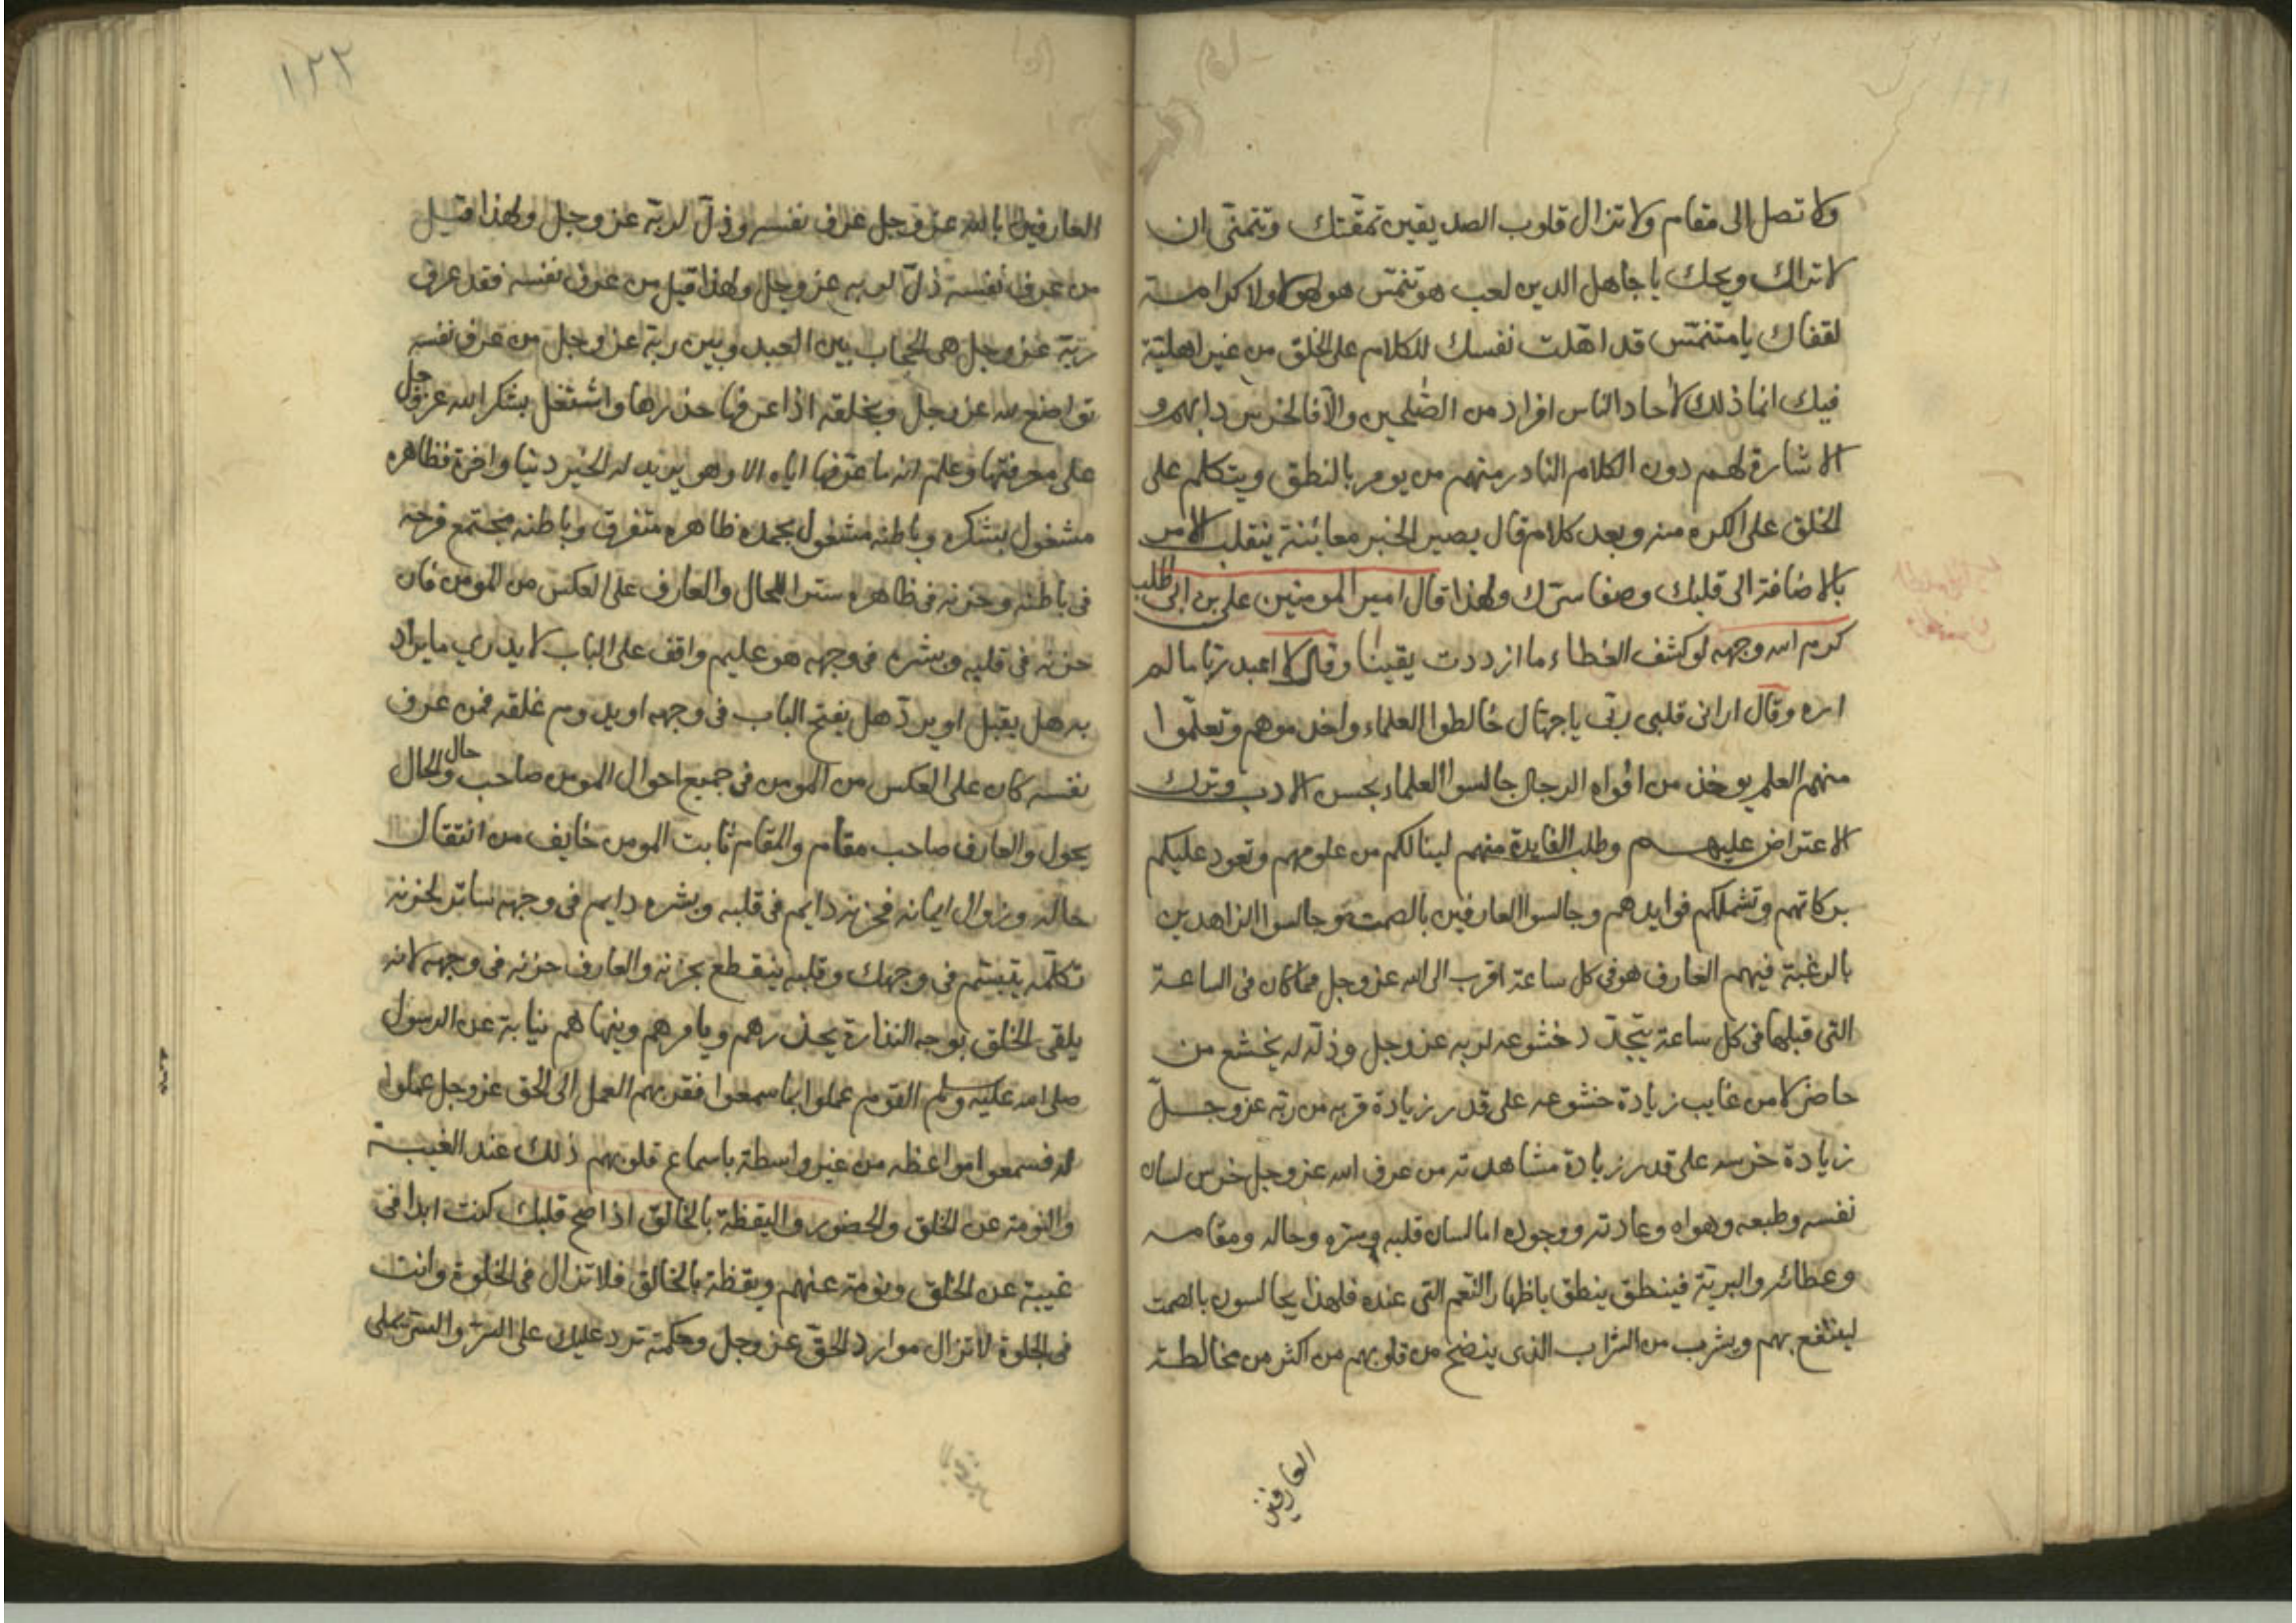 ولا تصل الى مقام ولا تزال قلوب الصديقين تمقتك وتتمنى ان
لا تراك ويحك يا جاهل الدين لعب هو تنمّس هو لهو لا ولا كرامة
لقفاك يا متنمّس قد اهّلت نفسك للكلام على الخلق من غير اهليّة
فيك انما ذلك لآحاد الناس افراد من الصّلحين والّا فالخرس دابهم و
الاشارة لهم دون الكلام النادر منهم من يومر بالنطق ويتكلم على
الخلق على الكره منه وبعد كلام قال يصير الخبر معاينة ينقلب الامر
بالاضافة الى قلبك وصفا سرّك ولهذا قال امير المومنين على بن ابى طالب
كرم الله وجهه لو كشف الغطاء ما ازددت يقينا وقال لا اعبد ربّا ما لم
اره وقال ارانى قلبى ربّى يا جهّال خالطوا العلماء واخدموهم وتعلّموا
منهم العلم يوخذ من افواه الرجال جالسوا العلماء بحسن الادب وترك
الاعتراض عليهم وطلب الفايدة منهم لينالكم من علومهم وتعود عليكم
بركاتهم وتشملكم فوايدهم وجالسوا العارفين بالصمت وجالسوا الزاهدين
بالرغبة فيهم العارف هو فى كل ساعة اقرب الى الله عز وجل مما كان فى الساعة
التى قبلها فى كل ساعة يتجدّد خشوعه لربه عز وجل وذلّه له يخشع من
حاضر لا من غايب زيادة خشوعه على قدر زيادة قربه من ربّه عز وجلّ
زيادة خرسه على قدر زيادة مشاهدته من عرف الله عز وجل خرس لسان
نفسه وطبعه وهواه وعادته ووجوده اما لسان قلبه وسرّه وحاله ومقامه
وعطائه والبريّة فينطق ينطق باظهار النّعم التى عنده فلهذا يجالسون بالصمت
لينتفع بهم ويشرب من الشراب الذى ينضح من قلوبهم من اكثر من مخالطة
العارفين
١٢٢
العارفين بالله عز وجل عرف نفسه وذلّ لربّه عز وجل ولهذا قيل
من عرف نفسه ذلّ لربه عز وجل ولهذا قيل من عرف نفسه فقد عرف
ربّه عز وجل هى الحجاب بين العبد وبين ربّه عز وجل من عرف نفسه
تواضع لله عز وجل وبخلقه اذا عرفها حذرها واشتغل بشكر الله عز وجل
على معرفتها وعلم انه ما عرّفها اياه الا وهو يريد له الخير دنيا واخرة فظاهره
مشغول بشكره وباطنه مشغول بحمده ظاهره متفرق وباطنه مجتمع فرحه
فى باطنه وحزنه فى ظاهره سترا للحال والعارف على العكس من المومن فان
حزنه فى قلبه وبشره فى وجهه هو عليهم واقف على الباب لا يدرى ما يراد
به هل يقبل او يردّ هل يفتح الباب فى وجهه او يدوم غلقه فمن عرف
نفسه كان على العكس من المومن فى جميع احوال المومن صاحب حال والحال
يحول والعارف صاحب مقام والمقام ثابت المومن خايف من انتقال
حاله وزوال ايمانه فحزنه دايم فى قلبه وبشره دايم فى وجهه ساتر لحزنه
تكلّمه يتبسّم فى وجهك وقلبه ينقطع بحزنه والعارف حزنه فى وجهه لانه
يلقى الخلق بوجه النذارة يحذرهم ويامرهم وينهاهم نيابة عن الرسول
صلى الله عليه وسلم القوم عملوا بما سمعوا فقربهم العمل الى الحق عز وجل عملوا
له فسمعوا مواعظه من غير واسطة باسماع قلوبهم ذلك عند الغيبة
والنومة عن الخلق والحضور واليقظة بالخالق اذا صح قلبك كنت ابدا فى
غيبة عن الخلق ونومة عنهم ويقظة بالخالق فلا تزال فى الخلوة وانت
فى الجلوة لا تزال موارد الحقّ عز وجل وحكمته ترد عليك على السرّ والسرّ يملى